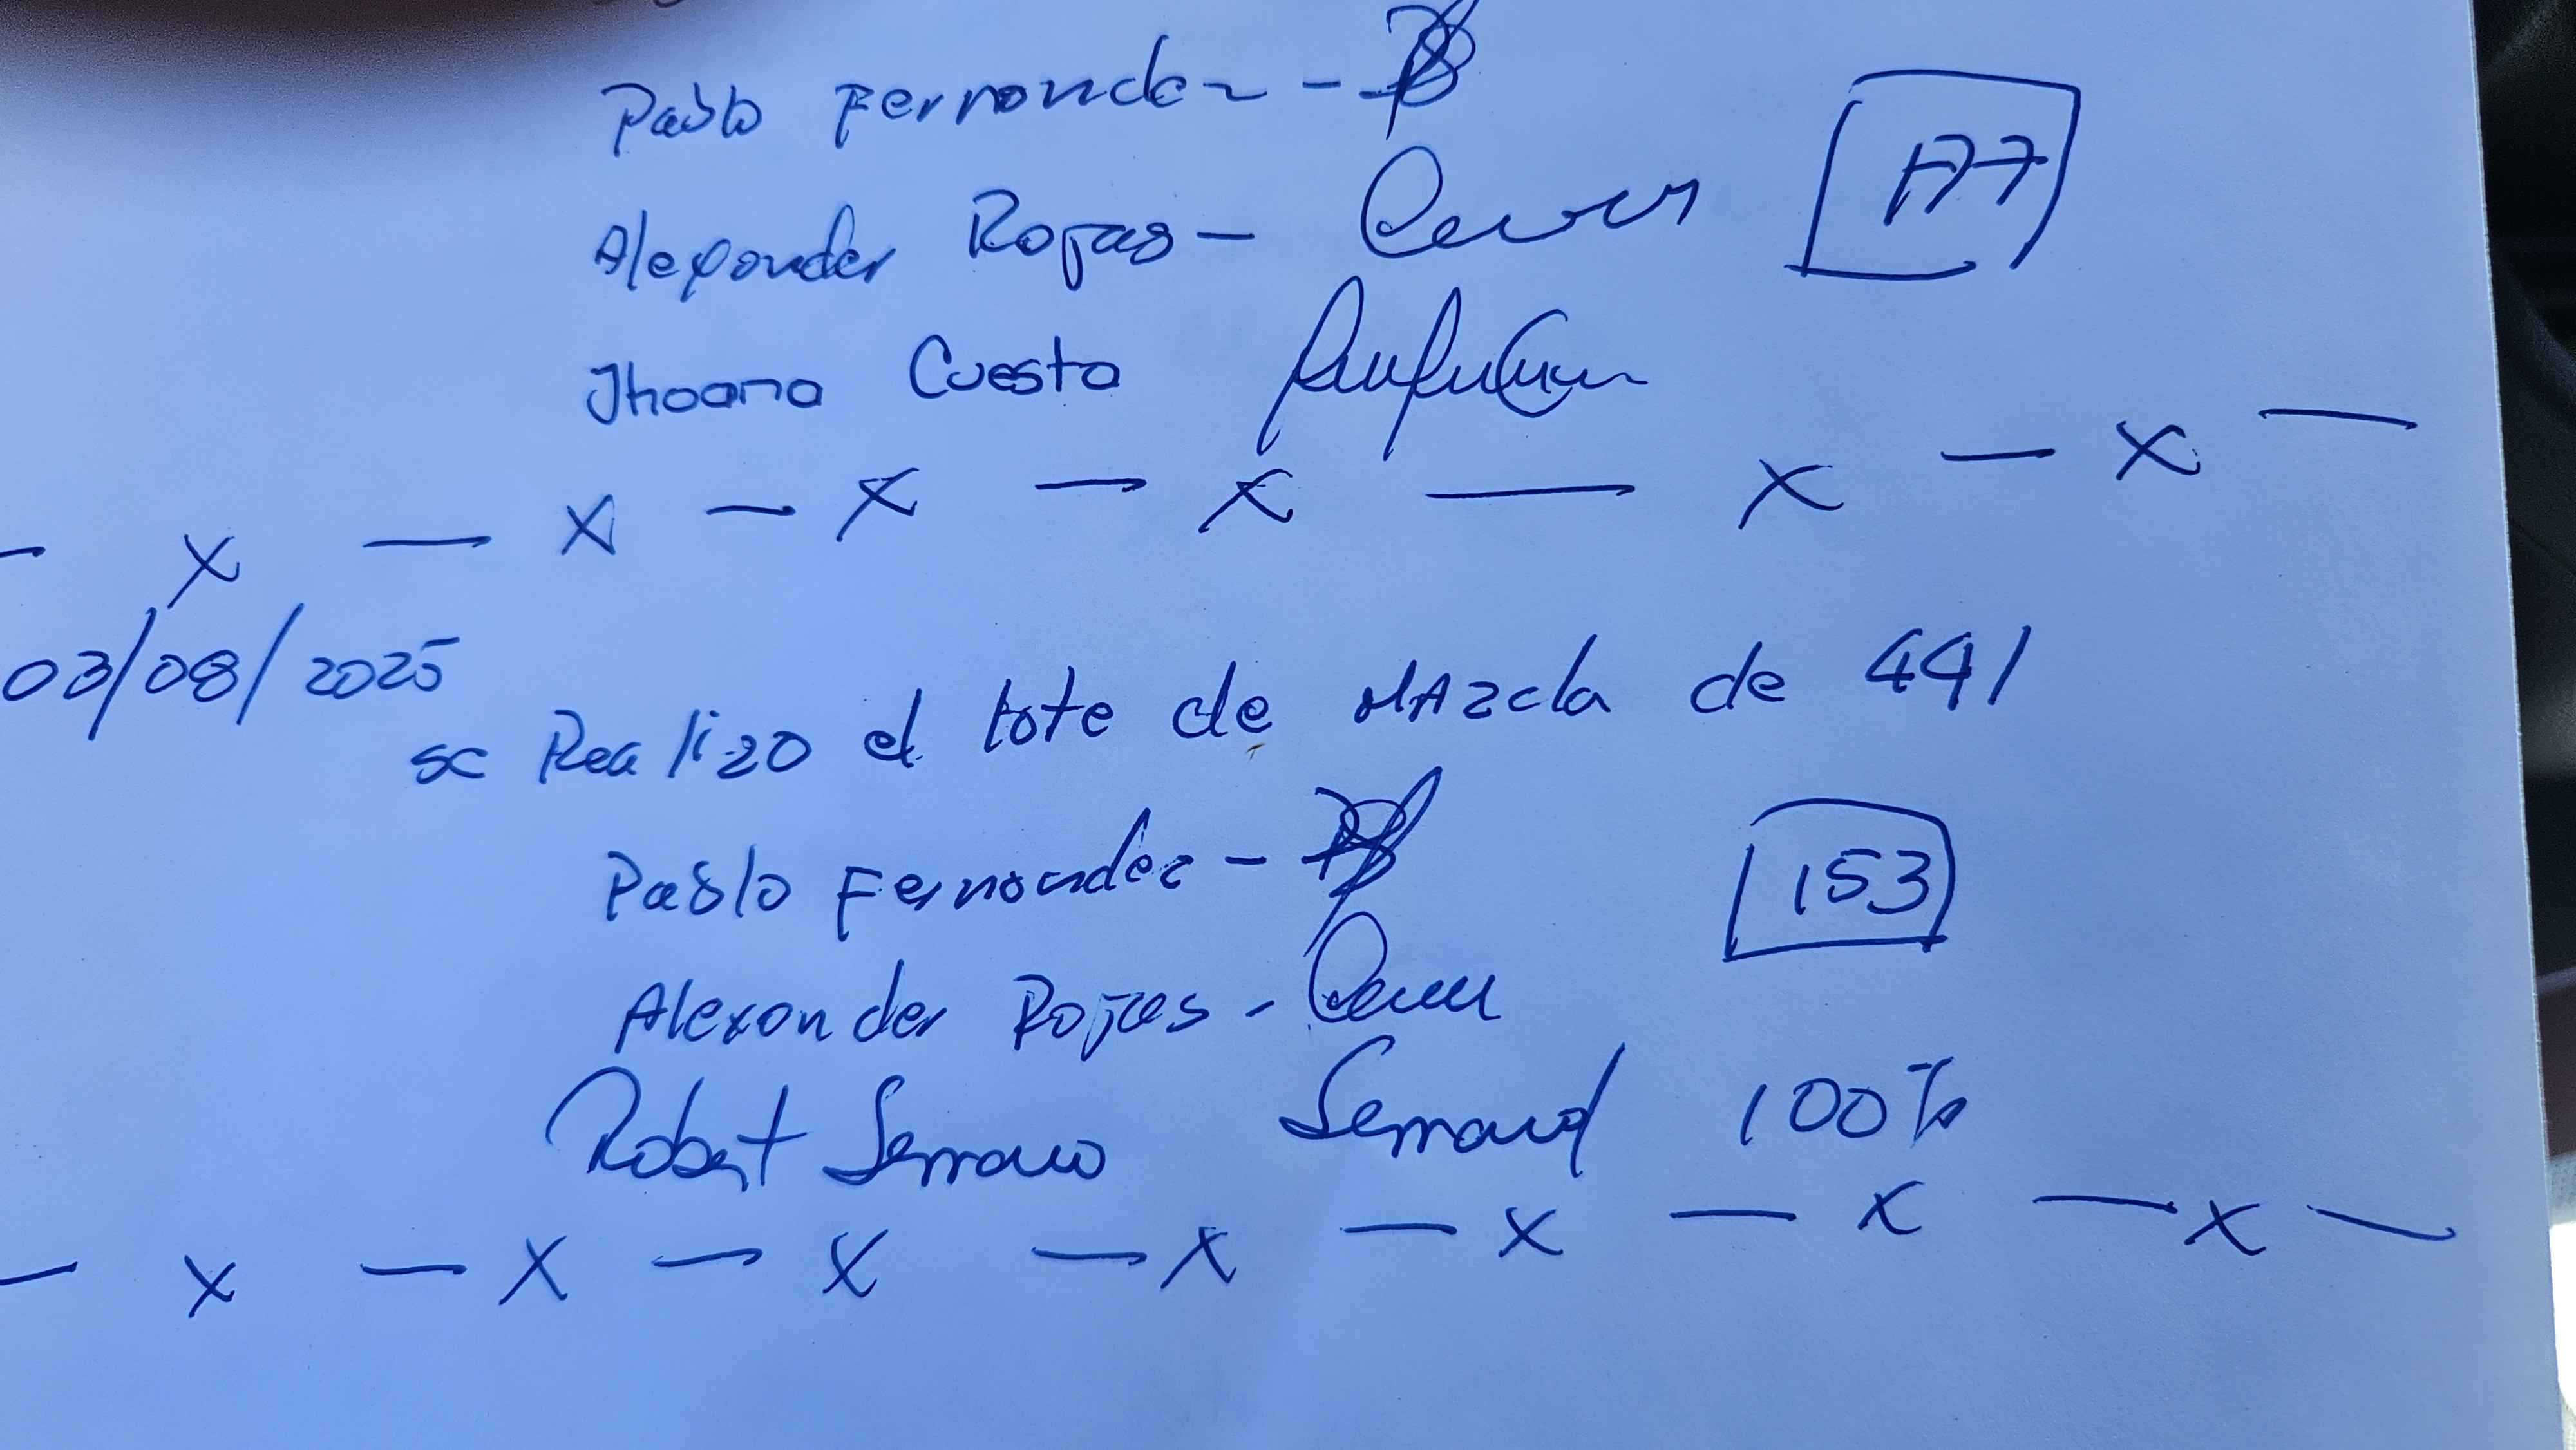 Pablo Fernandez -
Alexander Rojas - 177
Jhoana Cuesta
- x - x - x - x - x - x -
03/08/2025
se Realizo el tote de MAzcla de 441
Pablo Fernandez - 153
Alexander Rojas -
Robert Serrano 100%
- x - x - x - x - x - x - x -